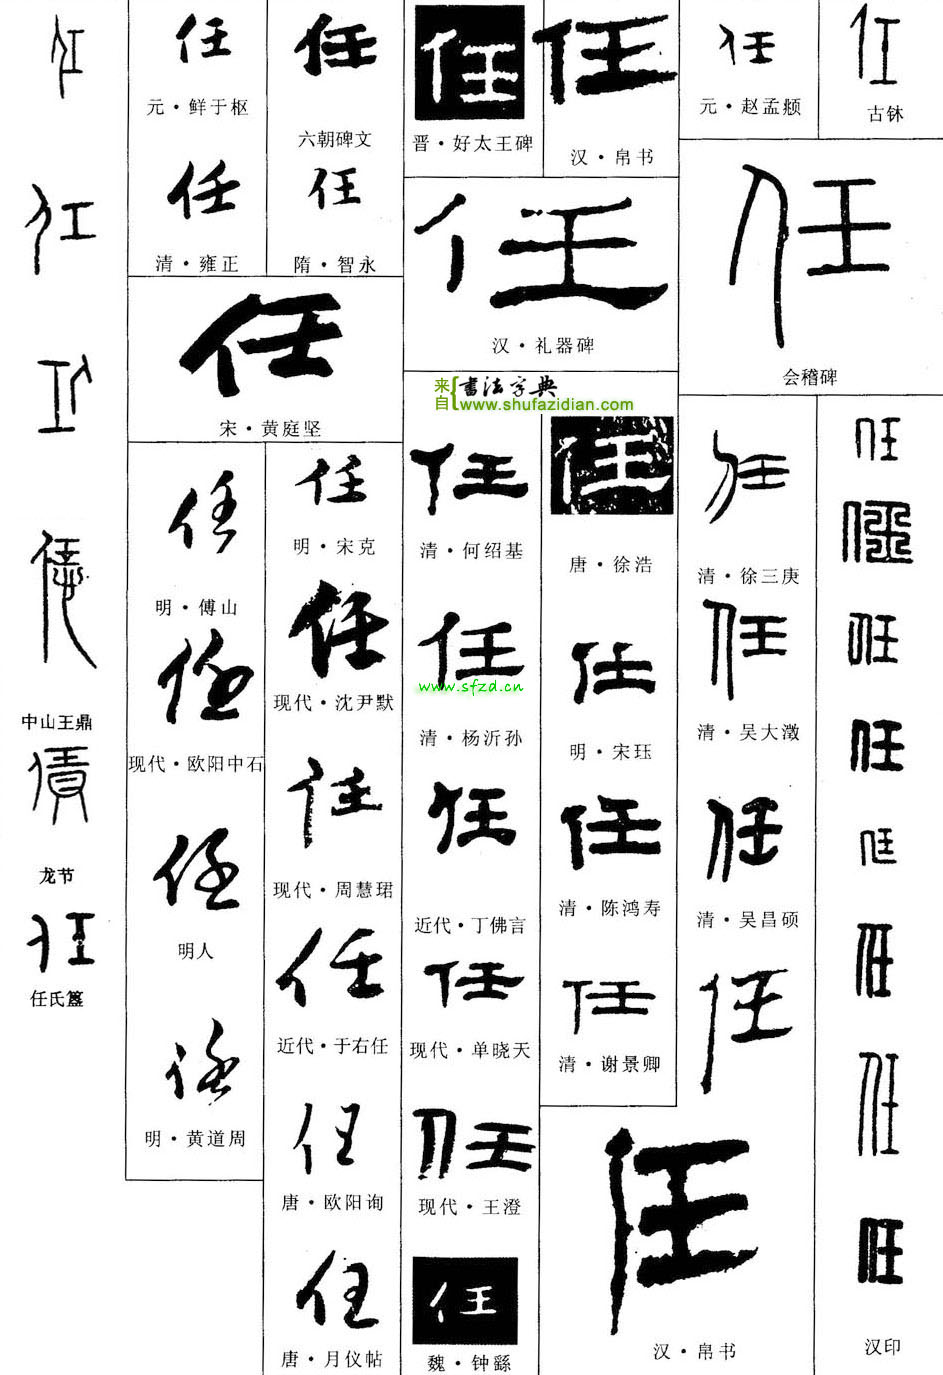 任
任
任
任
中山王鼎
任
龙节
任
任氏簋
任
元·鲜于枢
任
清·雍正
任
六朝碑文
任
隋·智永
任
宋·黄庭坚
任
明·傅山
任
现代·欧阳中石
任
明人
任
明·黄道周
任
明·宋克
任
现代·沈尹默
任
现代·周慧珺
任
近代·于右任
任
唐·欧阳询
任
唐·月仪帖
任
晋·好太王碑
任
汉·帛书
任
汉·礼器碑
来自{书法字典
www.shufazidian.com
任
清·何绍基
任
www.sfzd.cn
清·杨沂孙
任
近代·丁佛言
任
现代·单晓天
任
现代·王澄
任
魏·钟繇
任
唐·徐浩
任
明·宋珏
任
清·陈鸿寿
任
清·谢景卿
任
元·赵孟頫
任
古钵
任
会稽碑
任
清·徐三庚
任
清·吴大澂
任
清·吴昌硕
任
任
汉·帛书
任
任
任
任
任
任
任
任
汉印